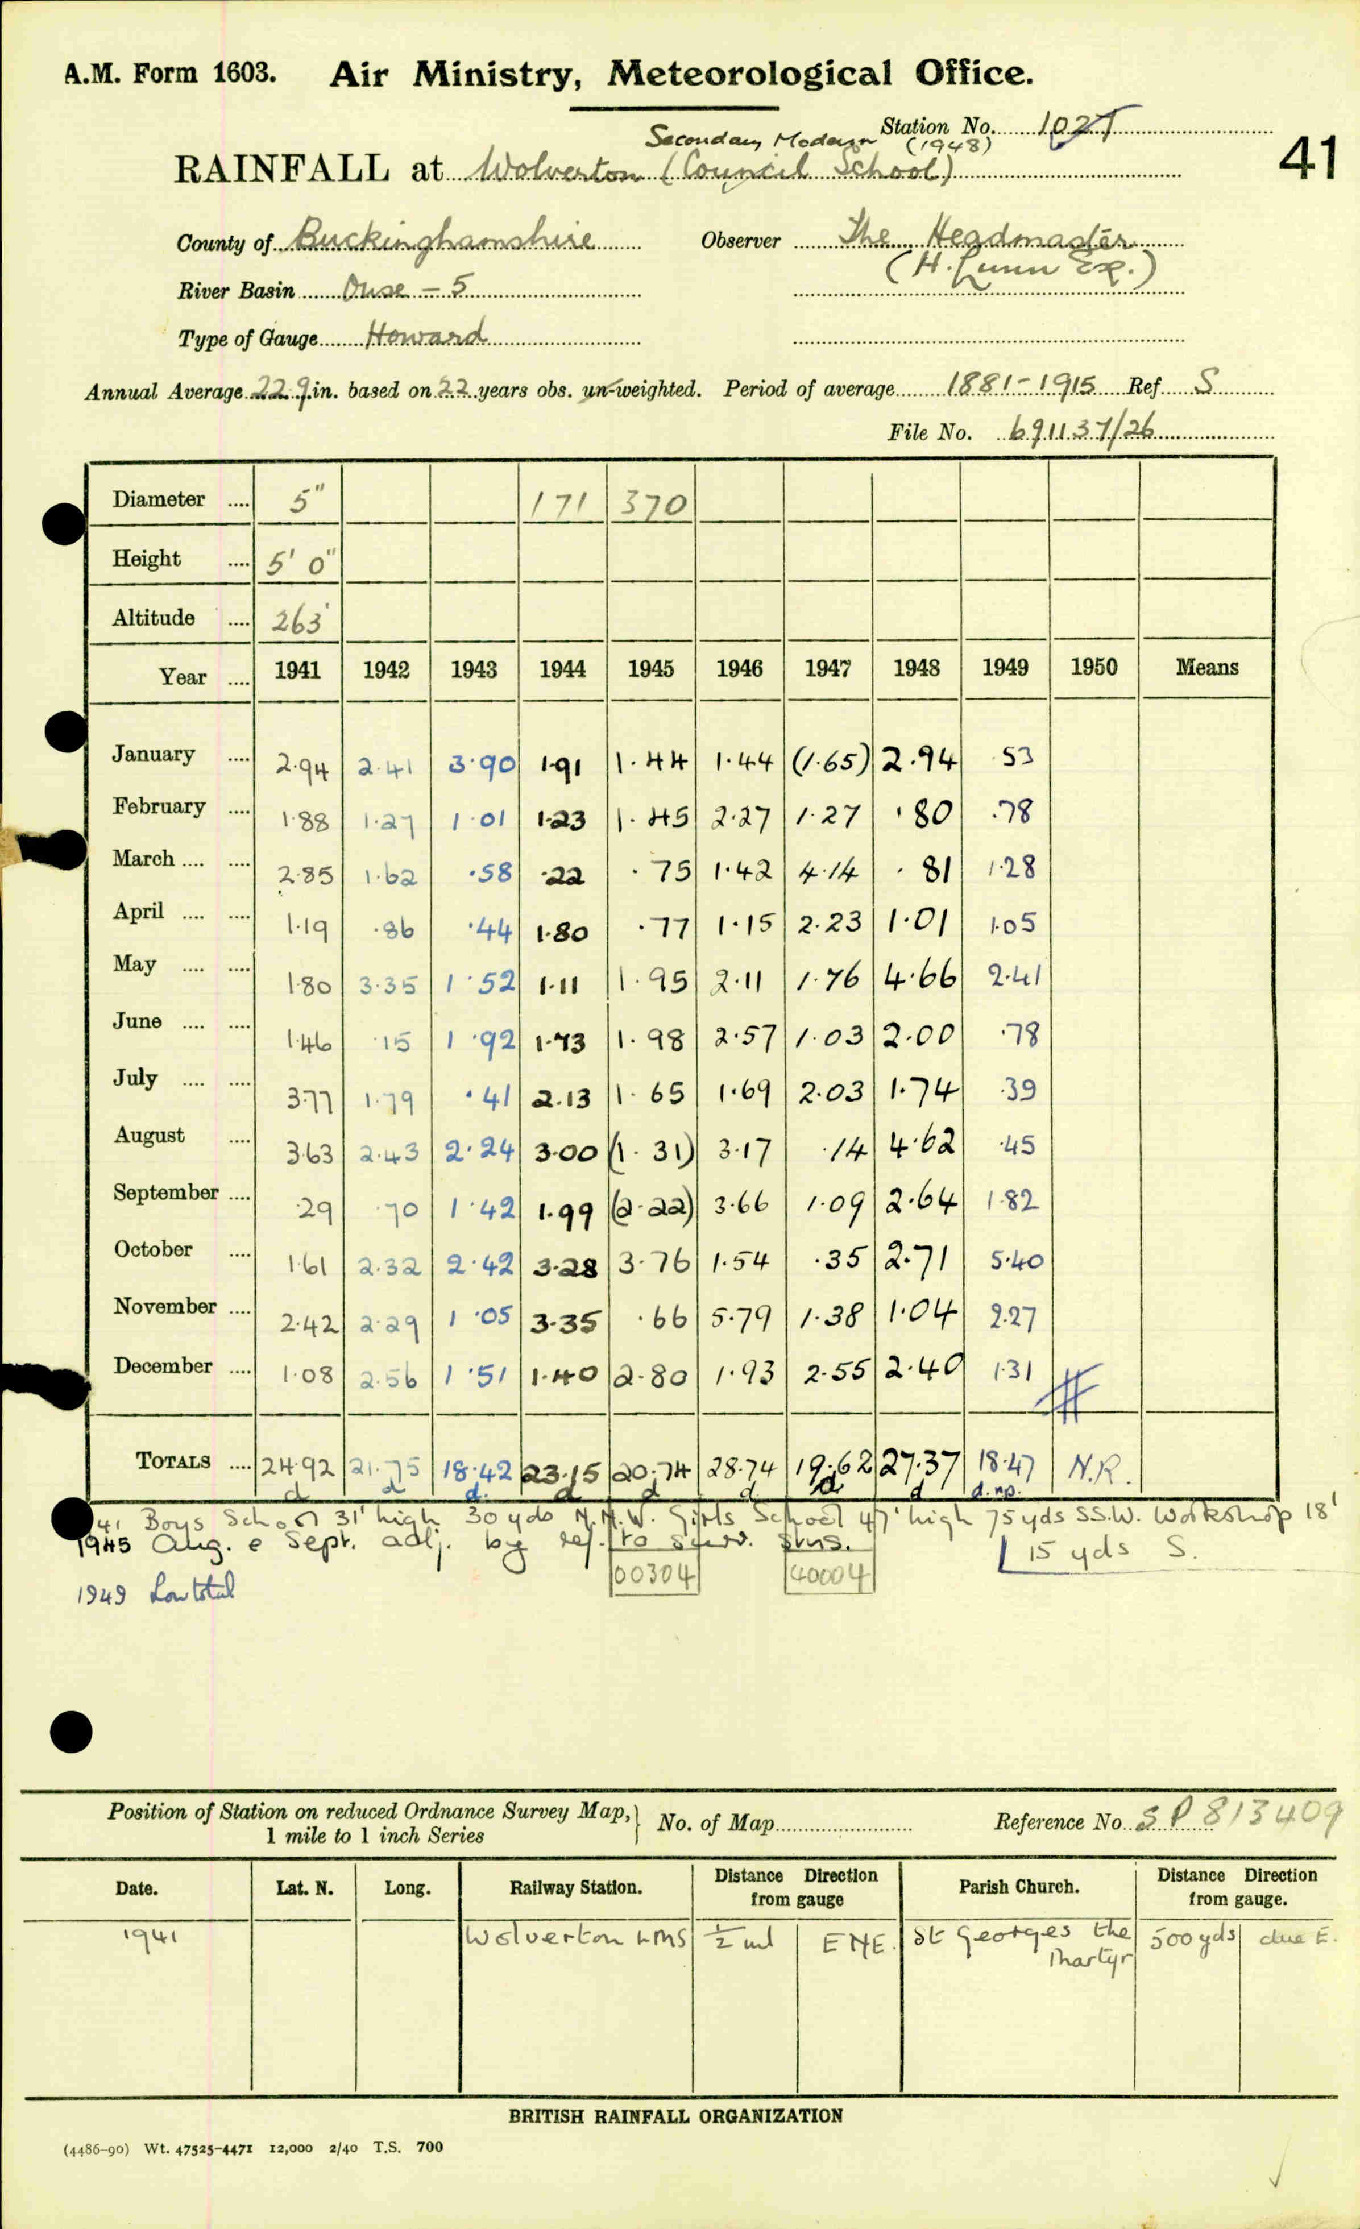 A.M. Form 1603. Air Ministry, Meteorological Office.
Station No. 102T
Secondary Modern (1948)
41
RAINFALL at Wolverton (Council School)
County of Buckinghamshire Observer The Headmaster
(H. Lunn Esq.)
River Basin Ouse – 5
Type of Gauge Howard
Annual Average 22.9 in. based on 22 years obs. un-weighted. Period of average 1881–1915 Ref S
File No. 691137/26
Diameter .... 5" 171 370
Height .... 5' 0"
Altitude .... 263'
Year .... 1941 1942 1943 1944 1945 1946 1947 1948 1949 1950 Means
January .... 2.94 2.41 3.90 1.91 1.44 1.44 (1.65) 2.94 .53
February .... 1.88 1.27 1.01 1.23 1.45 2.27 1.27 .80 .78
March .... .... 2.85 1.62 .58 .22 .75 1.42 4.14 .81 1.28
April .... .... 1.19 .86 .44 1.80 .77 1.15 2.23 1.01 1.05
May .... .... 1.80 3.35 1.52 1.11 1.95 2.11 1.76 4.66 2.41
June .... .... 1.46 .15 1.92 1.73 1.98 2.57 1.03 2.00 .78
July .... .... 3.77 1.79 .41 2.13 1.65 1.69 2.03 1.74 .39
August .... 3.63 2.43 2.24 3.00 (1.31) 3.17 .14 4.62 .45
September .... .29 .70 1.42 1.99 (2.22) 3.66 1.09 2.64 1.82
October .... 1.61 2.32 2.42 3.28 3.76 1.54 .35 2.71 5.40
November .... 2.42 2.29 1.05 3.35 .66 5.79 1.38 1.04 2.27
December .... 1.08 2.56 1.51 1.40 2.80 1.93 2.55 2.40 1.31
TOTALS .... 24.92 21.75 18.42 23.15 20.74 28.74 19.62 27.37 18.47 N.R.
d d d. d d d. d d d. np.
41 Boys School 31' high 30 yds N.N.W. Girls School 47' high 75 yds SS.W. Workshop 18'
15 yds S.
1945 Aug. & Sept. adj. by ref. to surr. stns.
00304 40004
1949 Low total
Position of Station on reduced Ordnance Survey Map,
1 mile to 1 inch Series
No. of Map Reference No. SP 813409
Date. Lat. N. Long. Railway Station. Distance Direction from gauge Parish Church. Distance Direction from gauge.
1941 Wolverton LMS ½ ml ENE. St Georges the Martyr 500 yds due E.
BRITISH RAINFALL ORGANIZATION
(4486–90) Wt. 47525–4471 12,000 2/40 T.S. 700